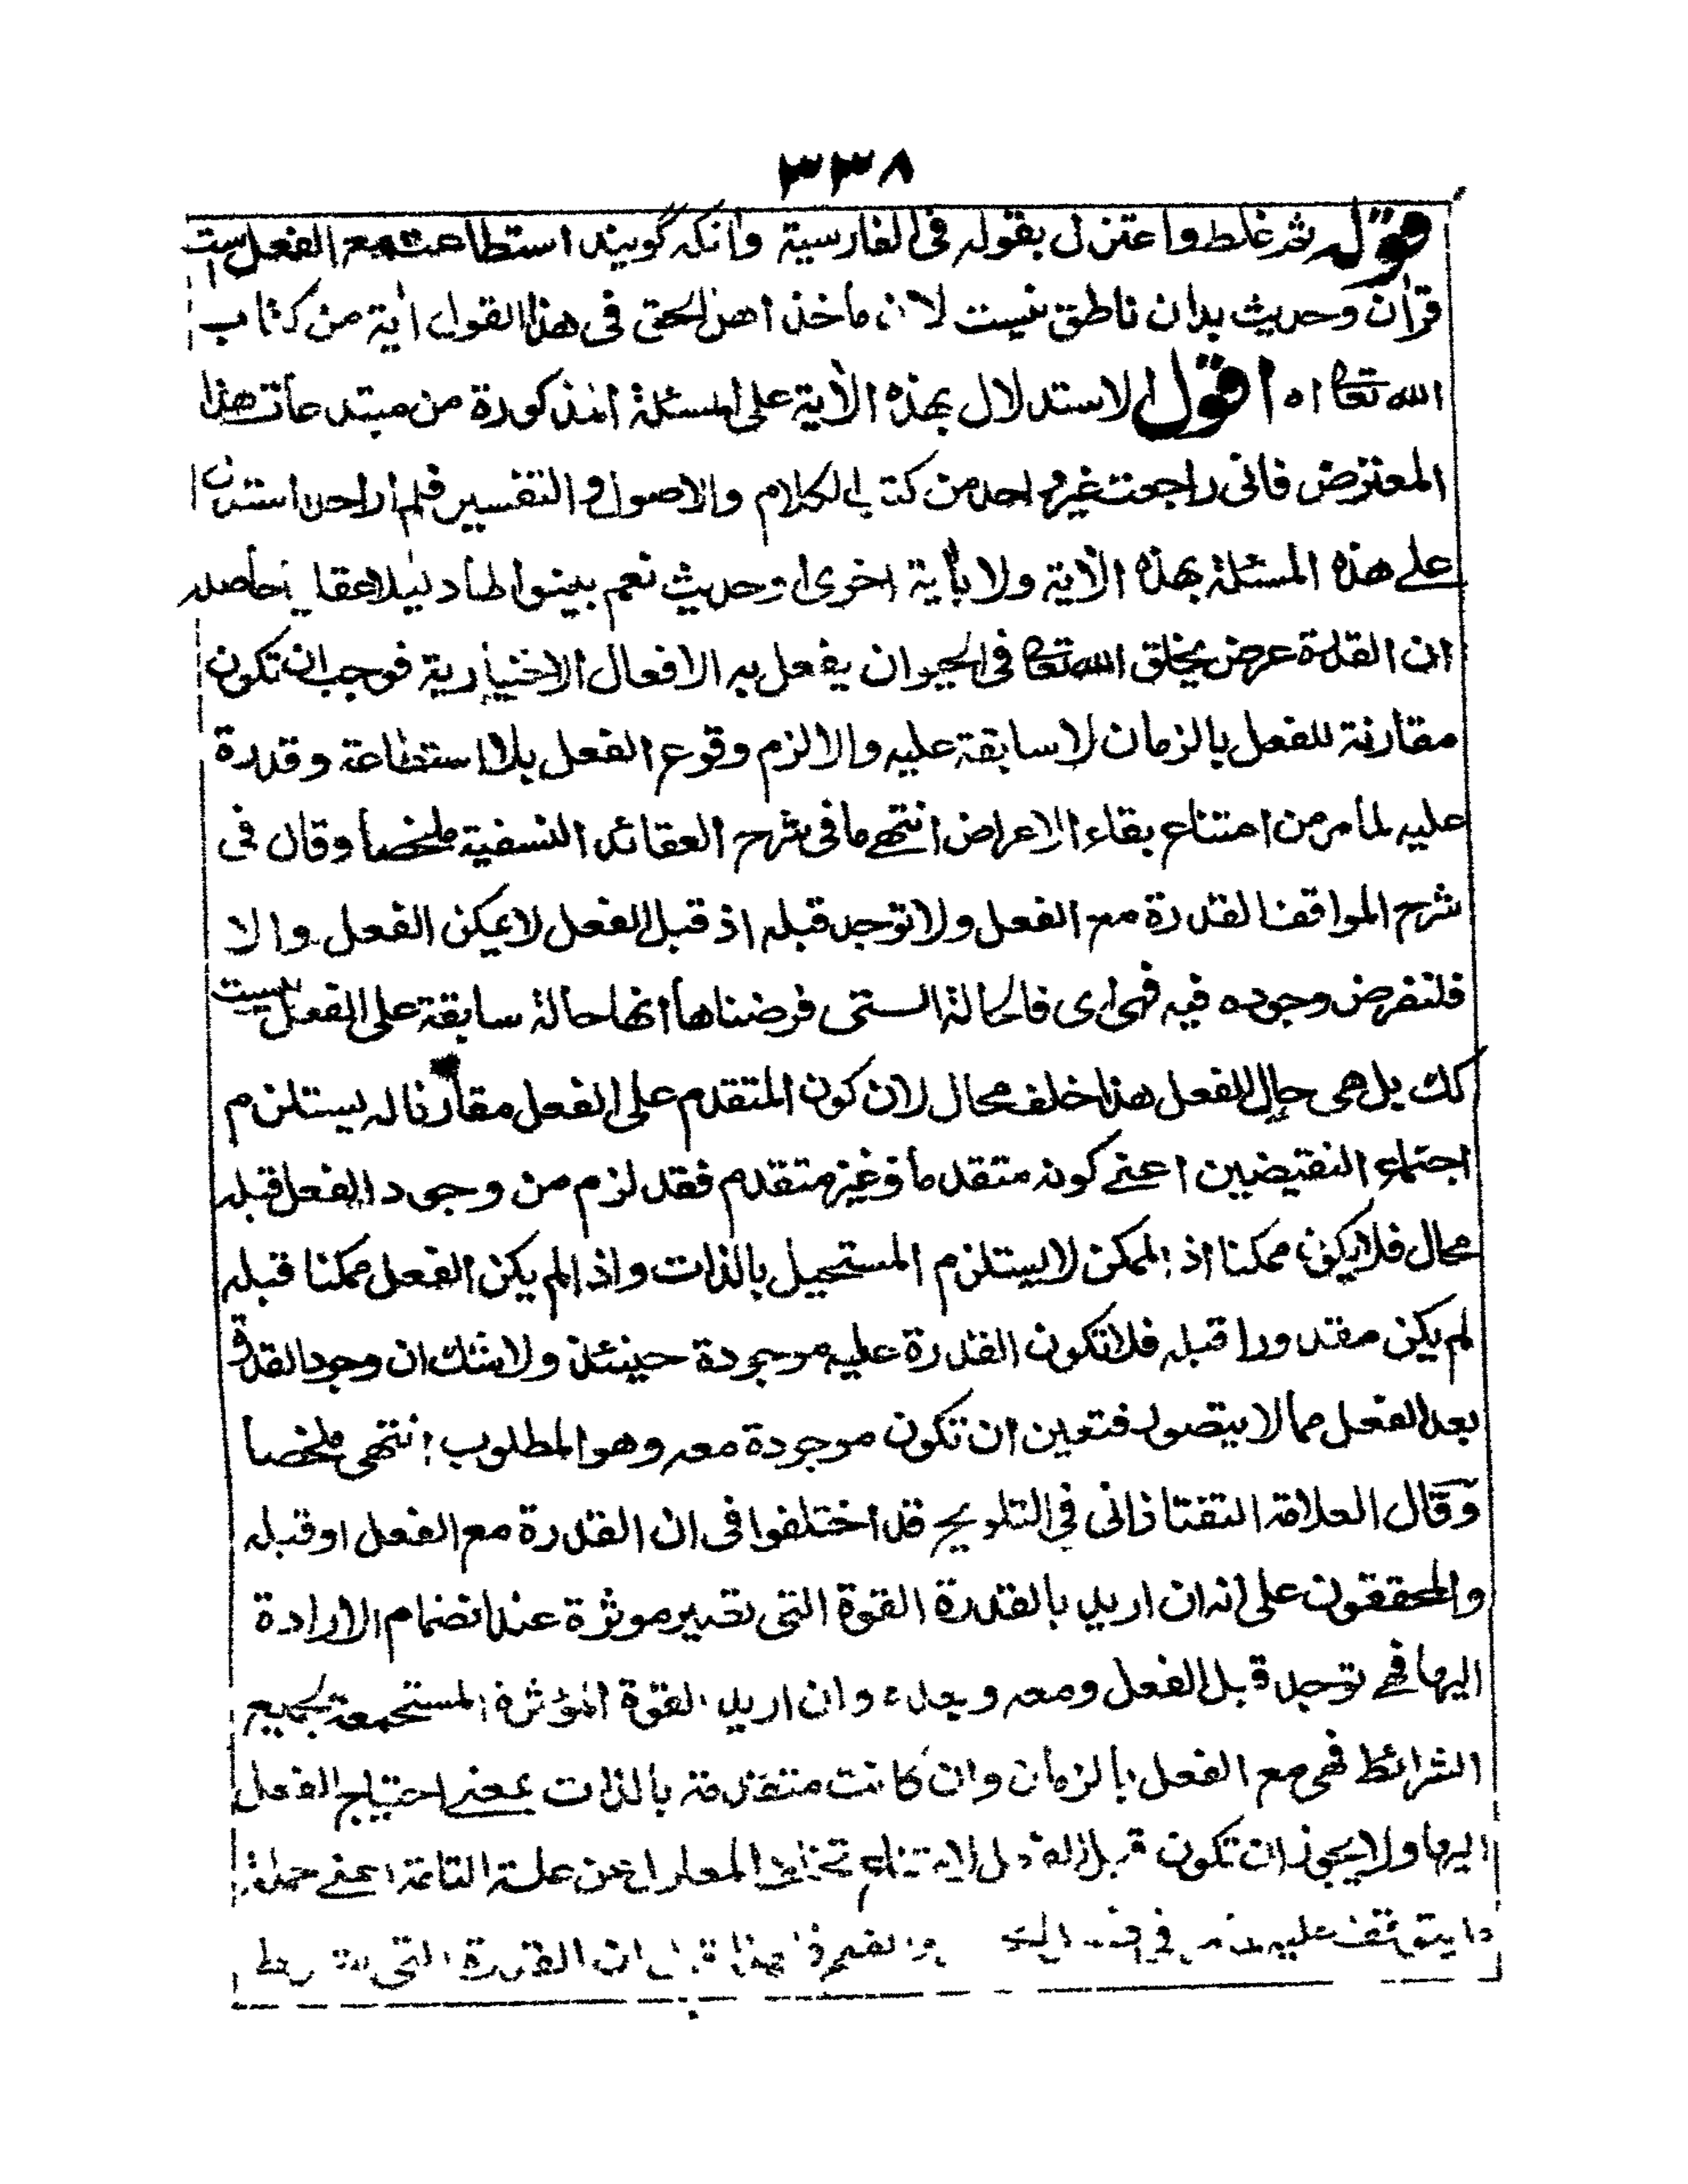 ٣٣٨
قوله ثم غلط واعتزل بقوله فى الفارسية وانكه گويند استطاعت مع الفعل ست
قرآن وحديث بدان ناطق نيست لان ماخذ اهل الحق فى هذا القول اٰية من كتاب
الله تعالى اه اقول الاستدلال بهذه الاٰية على المسئلة المذكورة من مبتدعات هذا
المعترض فانى راجعت غير واحد من كتب الكلام والاصول والتفسير فلم ار احدا استدل
على هذه المسئلة بهذه الاٰية ولا باٰية اخرى او حديث نعم بينوا لها دليلا عقليا حاصله
ان القدرة عرض يخلق الله تعالى فى الحيوان يفعل به الافعال الاختيارية فوجب ان تكون
مقارنة للفعل بالزمان لا سابقة عليه والا لزم وقوع الفعل بلا استطاعة وقدرة
عليه لما مر من امتناع بقاء الاعراض انتهى ما فى شرح العقائد النسفية ملخصا وقال فى
شرح المواقف القدرة مع الفعل ولا توجد قبله اذ قبل الفعل لا يمكن الفعل والا
فلنفرض وجوده فيه فهى اى فالحالة الستى فرضناها انها حالة سابقة على الفعل ليست
كك بل هى حال الفعل هذا خلف محال لان كون المتقدم على الفعل مقارنا له يستلزم
اجتماع النقيضين اعنى كونه متقدما وغير متقدم فقد لزم من وجود الفعل قبله
محال فلا يكون ممكنا اذ الممكن لا يستلزم المستحيل بالذات واذا لم يكن الفعل ممكنا قبله
لم يكن مقدورا قبله فلا تكون القدرة عليه موجودة حينئذ ولا شك ان وجود القدرة
بعد الفعل مما لا يتصور فتعين ان تكون موجودة معه وهو المطلوب انتهى ملخصا
وقال العلامة التفتازانى فى التلويح قد اختلفوا فى ان القدرة مع الفعل او قبله
والمحققون على انه ان اريد بالقدرة القوة التى تصير موثرة عند انضمام الارادة
اليها فهى توجد قبل الفعل ومعه وبعده وان اريد القوة المؤثرة المستجمعة بجميع
الشرائط فهى مع الفعل بالزمان وان كانت متقدمة بالذات بمعنى احتياج الفعل
اليها ولا يجوز ان تكون قبل الفعل لامتناع تخلف المعلول عن علته التامة اعنى جملة
ما يتوقف عليه ان القدرة التى